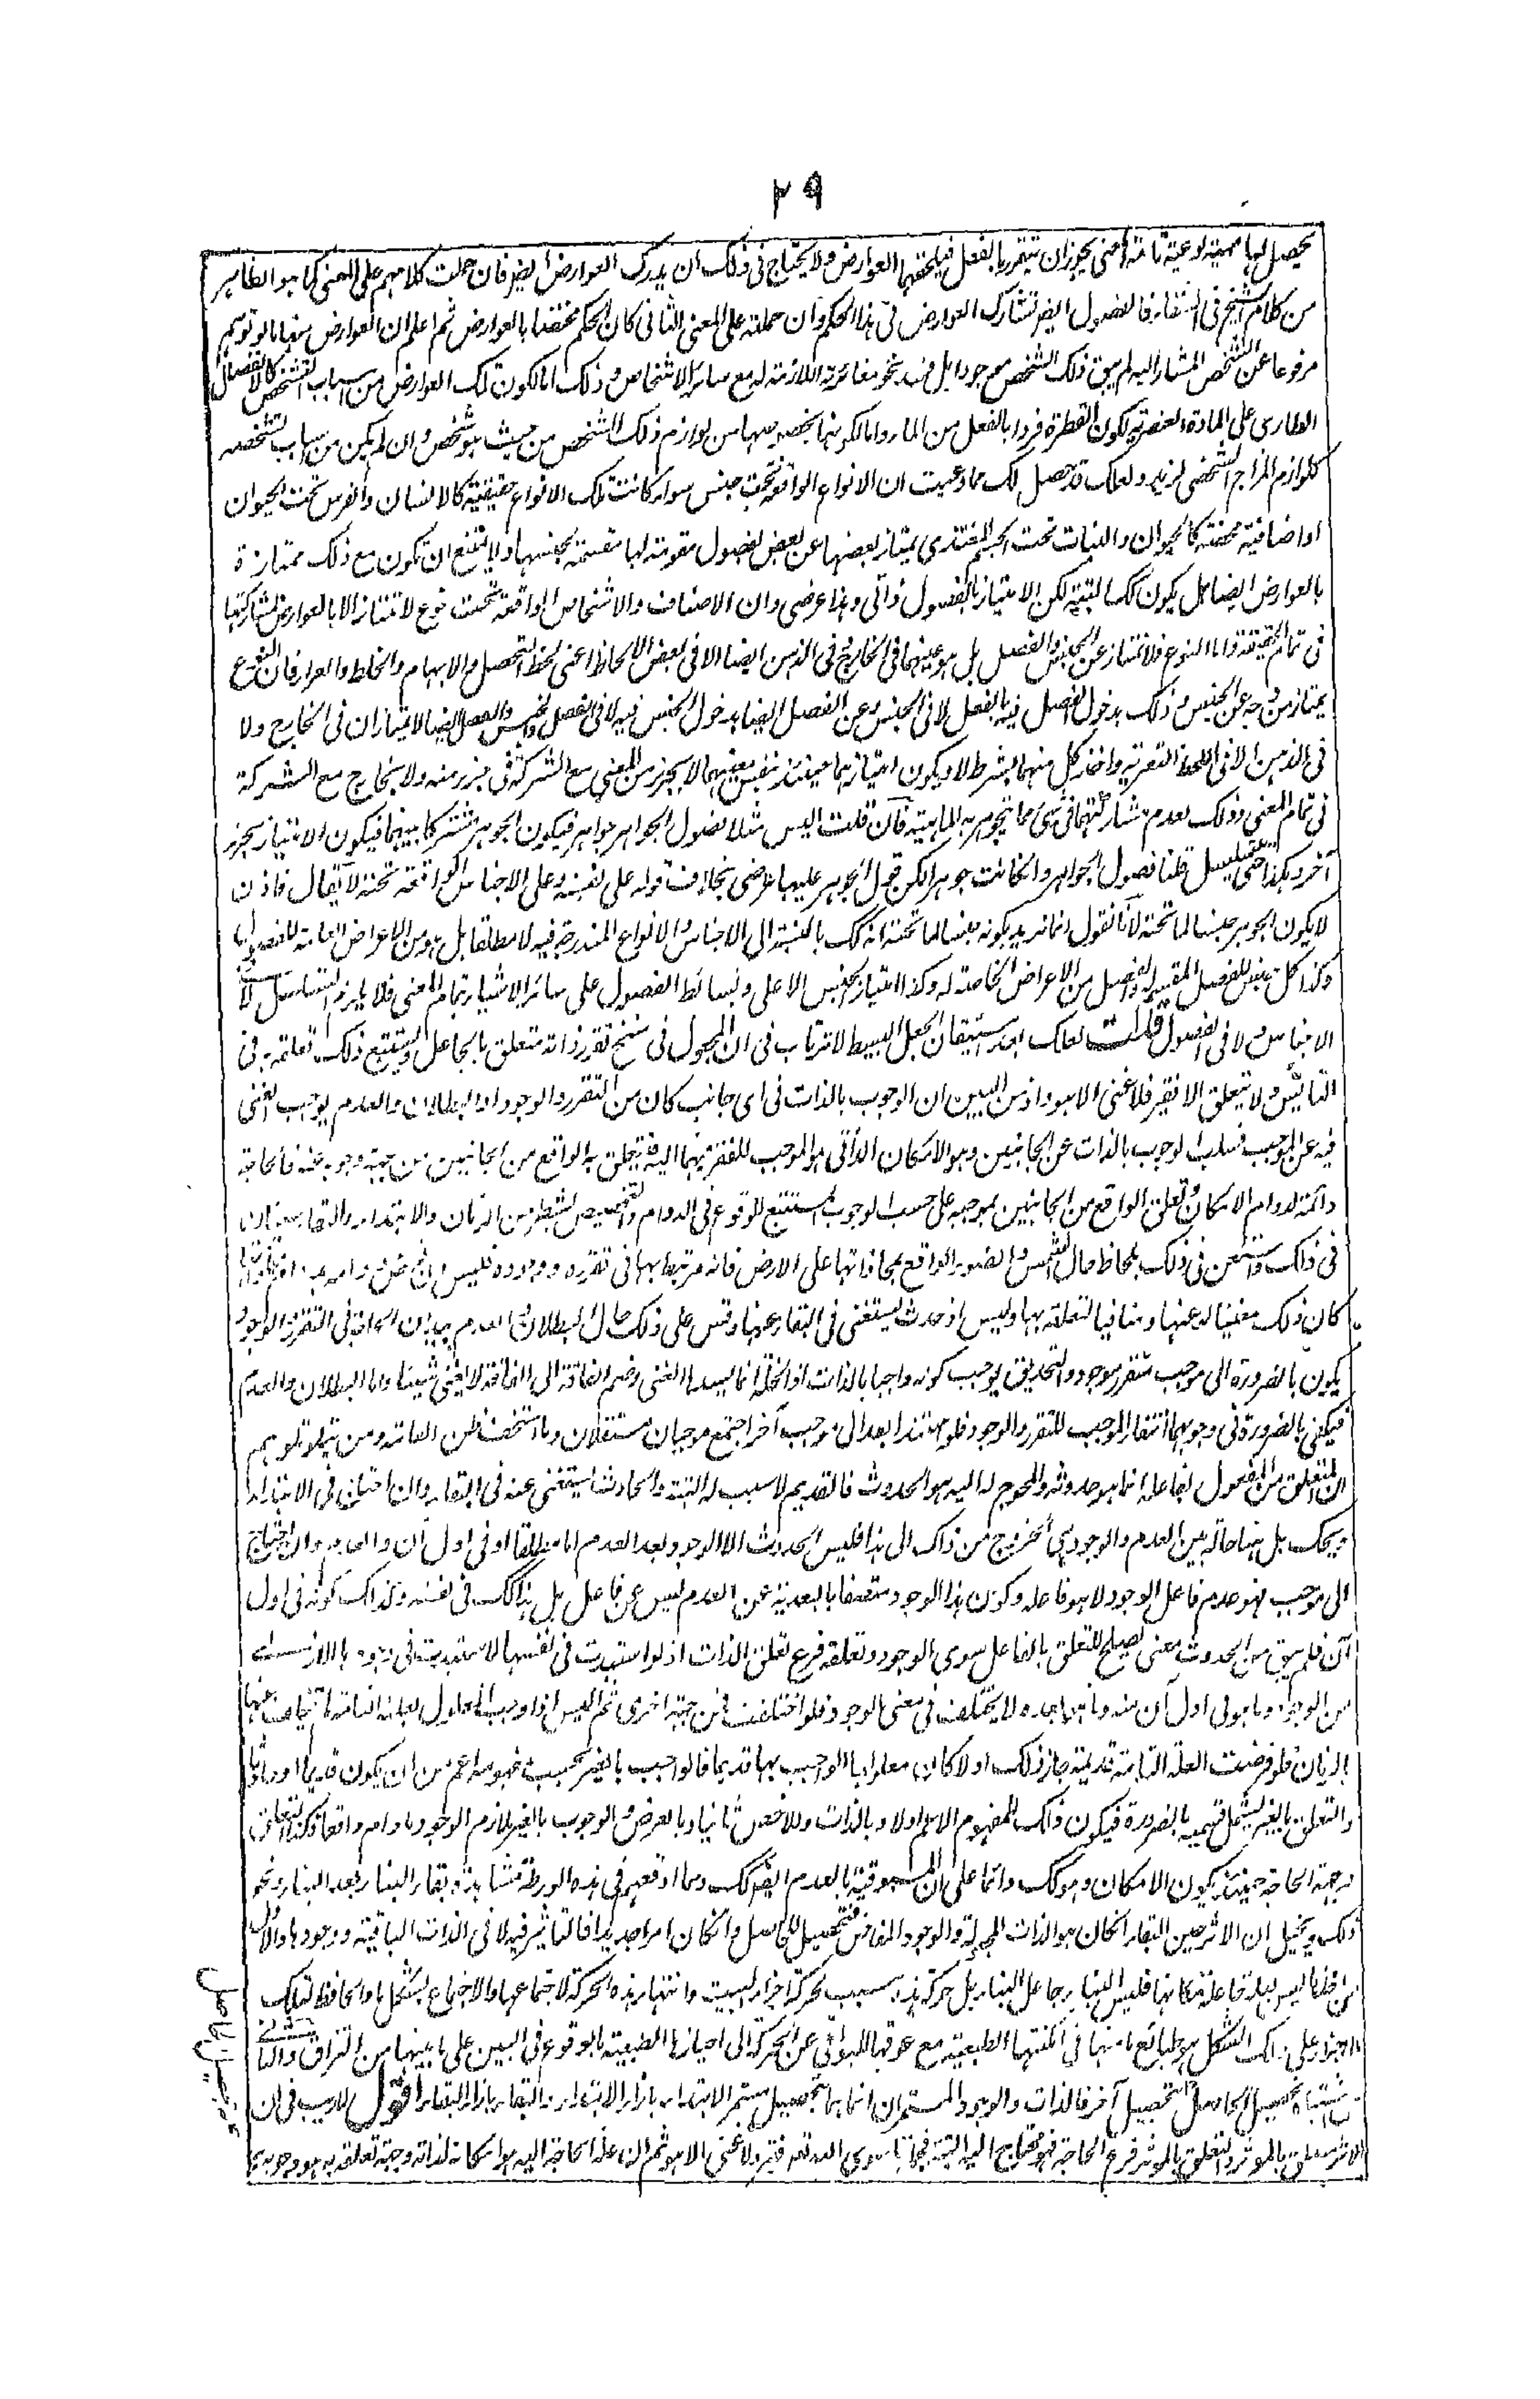 ٢٩
يحصل لها مهية نوعية تامة أخنى يجوزان تتقرر بالفعل فيلحقها العوارض ولا يحتاج فى ذلك ان يدرك العوارض ايضر فان حملت كلامهم على المعنى كما هو الظاهر
من كلام الشيخ فى الشفاء فالفصول ايضر تشارك العوارض فى هذا الحكم وان حملته على المعنى الثانى كان الحكم مختصا بالعوارض ثم اعلم ان العوارض منها ما لو توهم
مرفوعا عن الشخص المشار اليه لم يبق ذلك الشخص موجودا بل فسد نحو مغائرته اللازمة له مع سائر الاشخاص وذلك اما لكون تلك العوارض من اسباب التشخص كالانفصال
الطارى على المادة العنصرية لكون القطرة فردا بالفعل من الماء واما لكونها بخصوصها من لوازم ذلك الشخص من حيث هو شخص وان لم يكن من اسباب تشخصه
كلوازم المزاج الشخصى لزيد ولعلك قد حصل لك مما وعيت ان الانواع الواقعة تحت جنس سواء كانت تلك الانواع حقيقية كالانسان والفرس تحت الحيوان
او اضافية محضة كالحيوان والنبات تحت الجسم المغتذى يمتاز بعضها عن بعض بفصول مقومة لها مقسمة لجنسها ولا يمتنع ان تكون مع ذلك ممتازة
بالعوارض ايضا بل يكون كك البتة لكن الامتياز بالفصول ذاتى وهذا عرضى وان الاصناف والاشخاص الواقعة تحت نوع لا تمتاز الا بالعوارض لمشاركتها
فى تمام الحقيقة واما النوع فلا تمتاز عن الجنس والفصل بل هو عينهما فى الخارج وفى الذهن ايضا الا فى بعض الالحاظ اعنى لحظ التحصل والابهام والخلط والعراء فان النوع
يمتاز من وجه عن الجنس وذلك بدخول الفصل فيه بالفعل لا فى الجنس وعن الفصل ايضا بدخول الجنس فيه لا فى الفصل والجنس والفصل ايضا لا يمتازان فى الخارج ولا
فى الذهن الا فى اللحظ التعرية واخذ كل منهما بشرط لا ويكون امتيازهما حينئذ بنفس معنييهما لا بجزء من المعنى مع الشركة فى جزء منه ولا بخارج مع الشركة
فى تمام المعنى وذلك لعدم مشاركتهما فى شئ مما يتجوهر به الماهية فان قلت اليس مثلا فصول الجواهر جواهر فيكون الجوهر مشتركا بينهما فيكون الامتياز بجزء
آخر وهكذا حتى يتسلسل قلنا فصول الجواهر وان كانت جوهرا لكن قول الجوهر عليها عرضى بخلاف قوله على نفسه وعلى الاجناس الواقعة تحته لا يقال فاذن
لا يكون الجوهر جنسا لما تحته لانا نقول انما نريد بكونه جنسا لما تحته انه كك بالنسبة الى الاجناس والانواع المندرجة فيه لا مطلقا بل هو من الاعراض العامة للفصول
وكذا كل جنس للفصل المقسم له والفصل من الاعراض الخاصة له وكذا امتياز الجنس الاعلى وبسائط الفصول على سائر الاشياء بتمام المعنى فلا يلزم التسلسل لا
الاجناس ولا فى الفصول لعلك بعد استيقان الجعل البسيط لا ترتاب فى ان المجعول فى سنخ تقرر ذاته متعلق بالجاعل
ولا يتعلق الا فقير فلا غنى الا هو واذ من البين ان الوجوب بالذات فى اى جانب كان من التقرر والوجود او البطلان والعدم يوجب الغنى
فيه عن الموجب فسلب الوجوب بالذات عن الجانبين وهو الامكان الذاتى هو الموجب للفقر فيهما اليه فيتعلق به الواقع من الجانبين من جهة وجوبه عنه فالحاجة
دائمة لدوام الامكان وتعلق الواقع من الجانبين بموجبه على حسب الوجوب يستتبع الوقوع فى الدوام والتخصيص لشطر من الزمان والابتداء والبقاء سيان
فى ذلك واستعن فى ذلك بلحاظ حال الشمس والضوء الواقع بمحاذاتها على الارض فانه مرتبط بها فى تقرره ووجوده فليس ان فرض دوامه
كان ذلك مغنيا له عنها ومنافيا لتعلقه بها وليس اذ حدث يستغنى فى البقاء عنها وقس على ذلك حال البطلان والعدم بيد ان الواقع فى التقرر والوجود
يكون بالضرورة الى موجب متقرر موجود والتحديق يوجب كونه واجبا بالذات اذ الخلة انما يسدها الغنى وضم الفاقة الى الفاقة لا يغنى شيئا واما البطلان والعدم
فيكفى بالضرورة فى وجوبهما انتفاء الموجب للتقرر والوجود فلو استندا بعد الى موجب آخر اجتمع موجبان مستقلان وما استخف ظن العامة ومن يتلو تلوهم
ان المتعلق من المفعول بفاعله انما هو حدوثه والمحوج له اليه هو الحدوث فالقديم لا سبب له البتة والحادث يستغنى عنه فى البقاء وان احتاج فى الابتداء
ويحك بل هنا حالة بين العدم والوجود هى الخروج من ذاك الى هذا فليس الحدوث الا الوجود بعد العدم اما مطلقا او فى اول آن والعدم وان احتاج
الى موجب فهو عدم فاعل الوجود لا هو فاعله وكون هذا الوجود متصفا بالبعدية عن العدم ليس عن فاعل بل هذا كك فى نفسه وكذاك كونه فى اول
آن فلم يبق من الحدوث معنى يصلح للتعلق بالفاعل سوى الوجود وتعلقه فرع تعلق الذات اذ لو استبدت فى نفسها لاستبدت فى وجودها
من الوجود وما هو فى اول آن منه وما هو بعده لا يختلف فى معنى الوجود فلو اختلفت فمن جهة اخرى ثم اليس اذا وجب المعلول لعلته التامة
الزمان فلو فرضت العلة التامة قديمة جاز ذلك او لا كان معلولها الواجب بها قديما فالواجب بالغير بحسب مفهومه اعم من ان يكون قديما او حادثا
والتعلق بالغير يشمل قسميه بالضرورة فيكون ذلك للمفهوم الاعم اولا وبالذات وللاخص ثانيا وبالعرض والوجوب بالغير يلازم الوجود ما دام واقعا فكذا التعلق
وجهة الحاجة حينئذ يكون الامكان وهو كك دائما على ان المسبوقية بالعدم ايضر كك ومما اوقعهم فى هذه الورطة مشاهدة بقاء البناء بعد البناء ونحو
ذلك ويخيل ان الاثر حين البقاء ان كان هو الذات المجعولة والوجود المفاض فتحصيل للحاصل وان كان امرا جديدا فالتاثير فيه لا فى الذات الباقية ووجودها والاول
من اخذ ما ليس بعلة فاعلة مكانها فليس البناء بجاعل البناء بل حركة يده سبب لحركة اجزاء البيت وانتهاء هذه الحركة لاجتماعها والاجتماع لتشكل ما والحافظ لتلك
الاجزاء على ذلك الشكل هو طبائعها منها فى امكنتها الطبعية مع عوقها للبواقى عن الحركة الى احيازها الطبيعية بالوقوع فى البين على ما بينها من التراق
تحصيل الحاصل بتحصيل آخر فالذات والوجود المستمران انما هما بتحصيل مستمر الابتداء بازاء الابتداء والبقاء بازاء البقاء اقول لا ريب فى ان
الاثر متعلق بالمؤثر والتعلق بالمؤثر فرع الحاجة فهو محتاج اليه البتة فما سوى العدم فقير ولا غنى الا هو ثم ان علة الحاجة اليه هو امكانه لذاته وجهة تعلقه به هو وجوبه